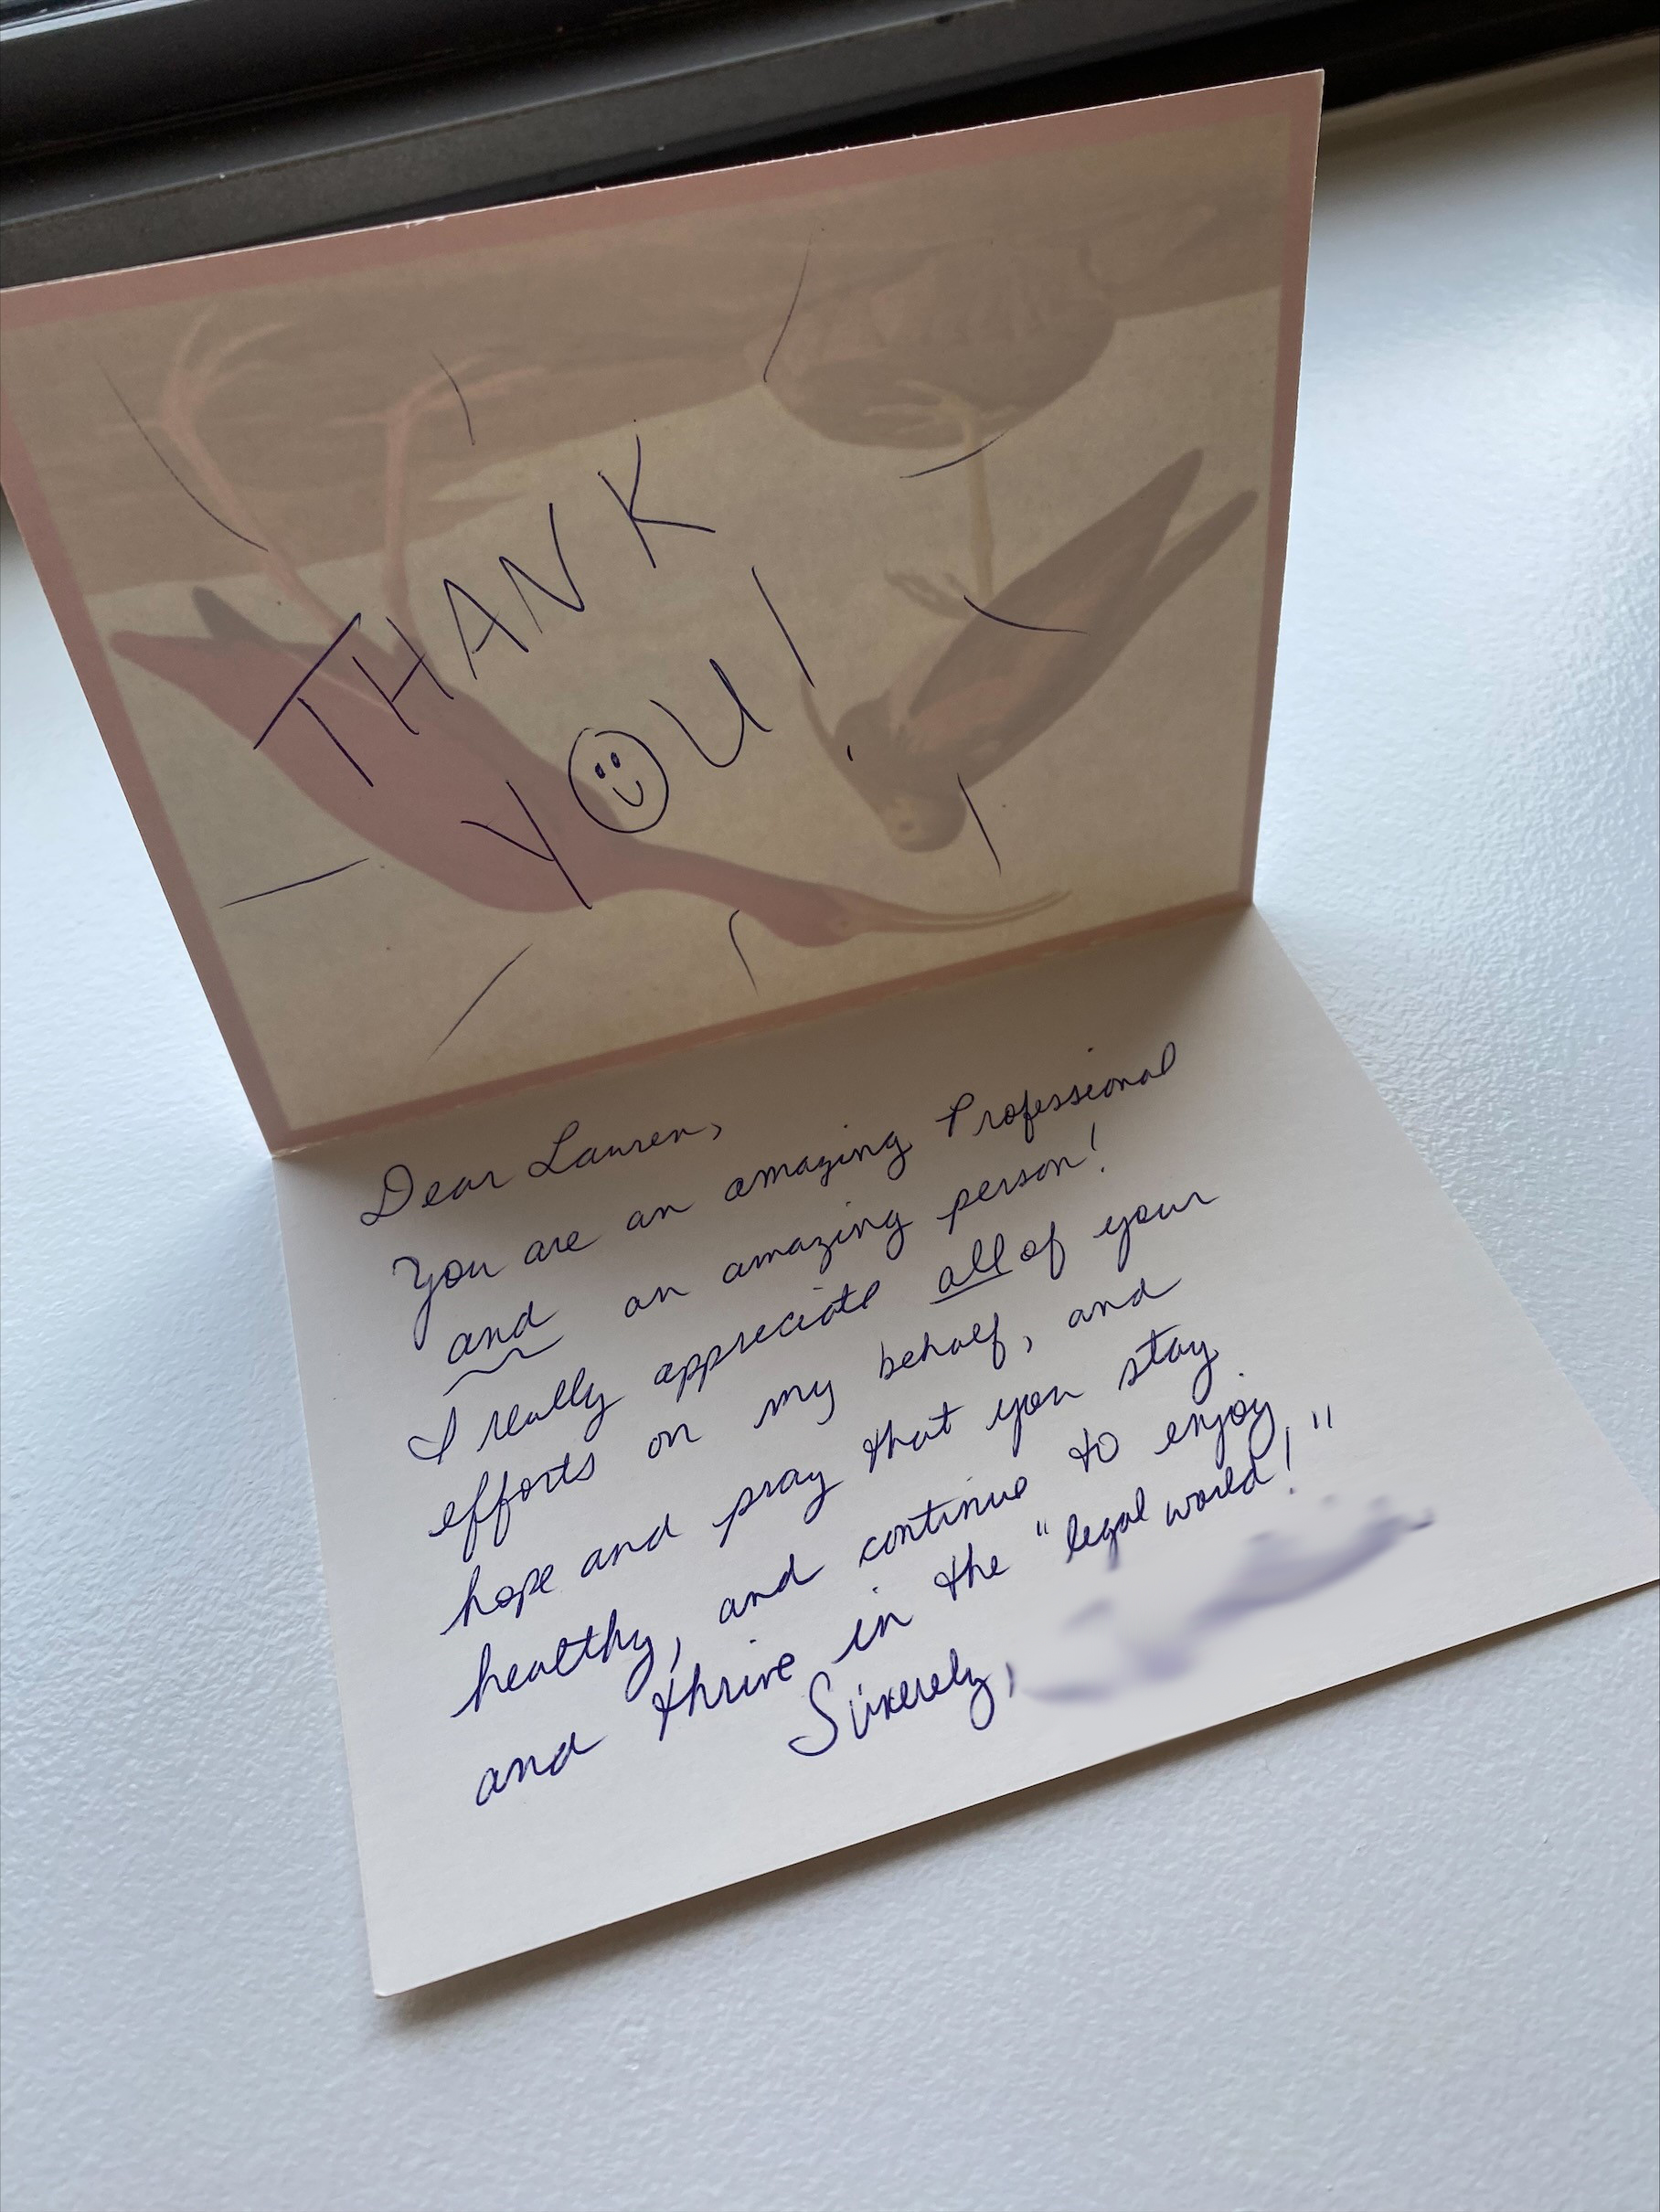 THANK
YOU!
Dear Lauren,
You are an amazing Professional
and an amazing person!
I really appreciate all of your
efforts on my behalf, and
hope and pray that you stay
healthy, and continue to enjoy
and thrive in the "legal world!"
Sincerely,